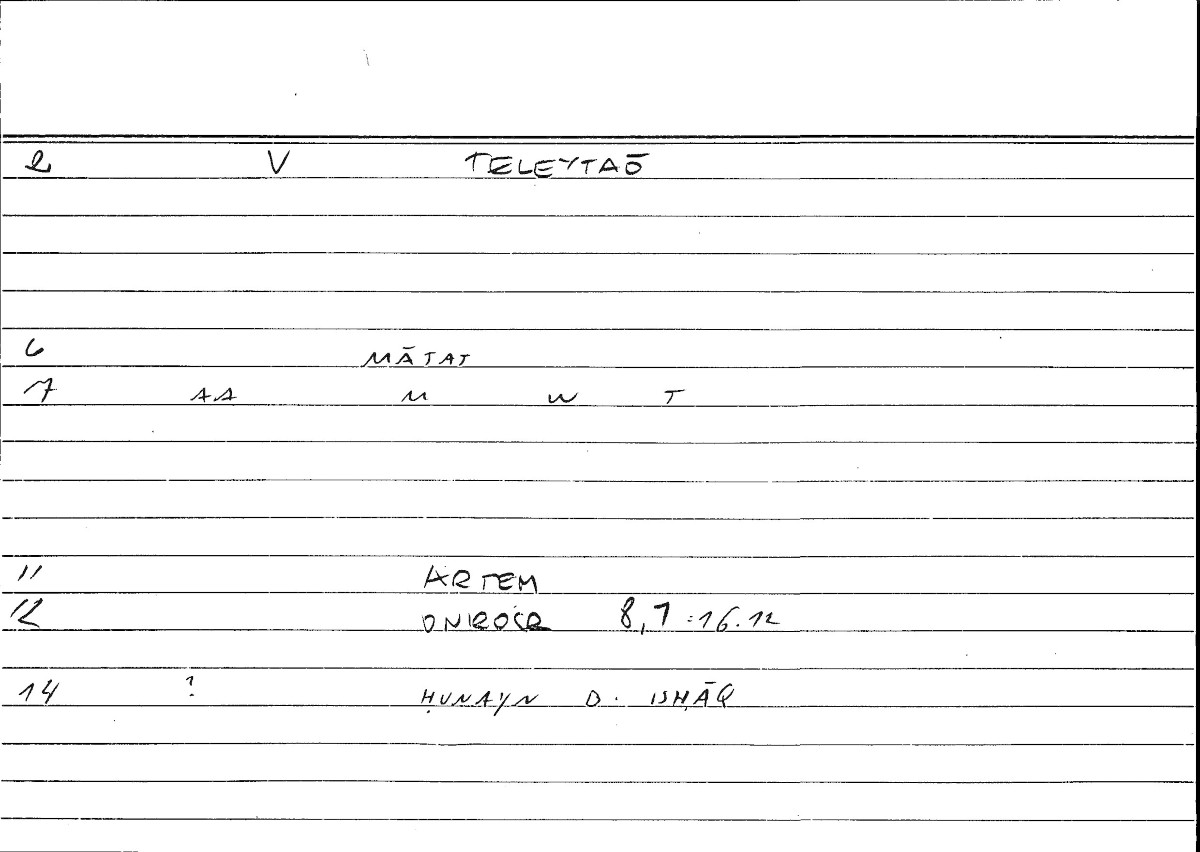 2 V TELEYTAŌ
6 MĀTAT
7 AA M W T
11 ARTEM
12 ONIROCR 8,7:16.12
14 ? ḤUNAYN B. ISḤĀQ